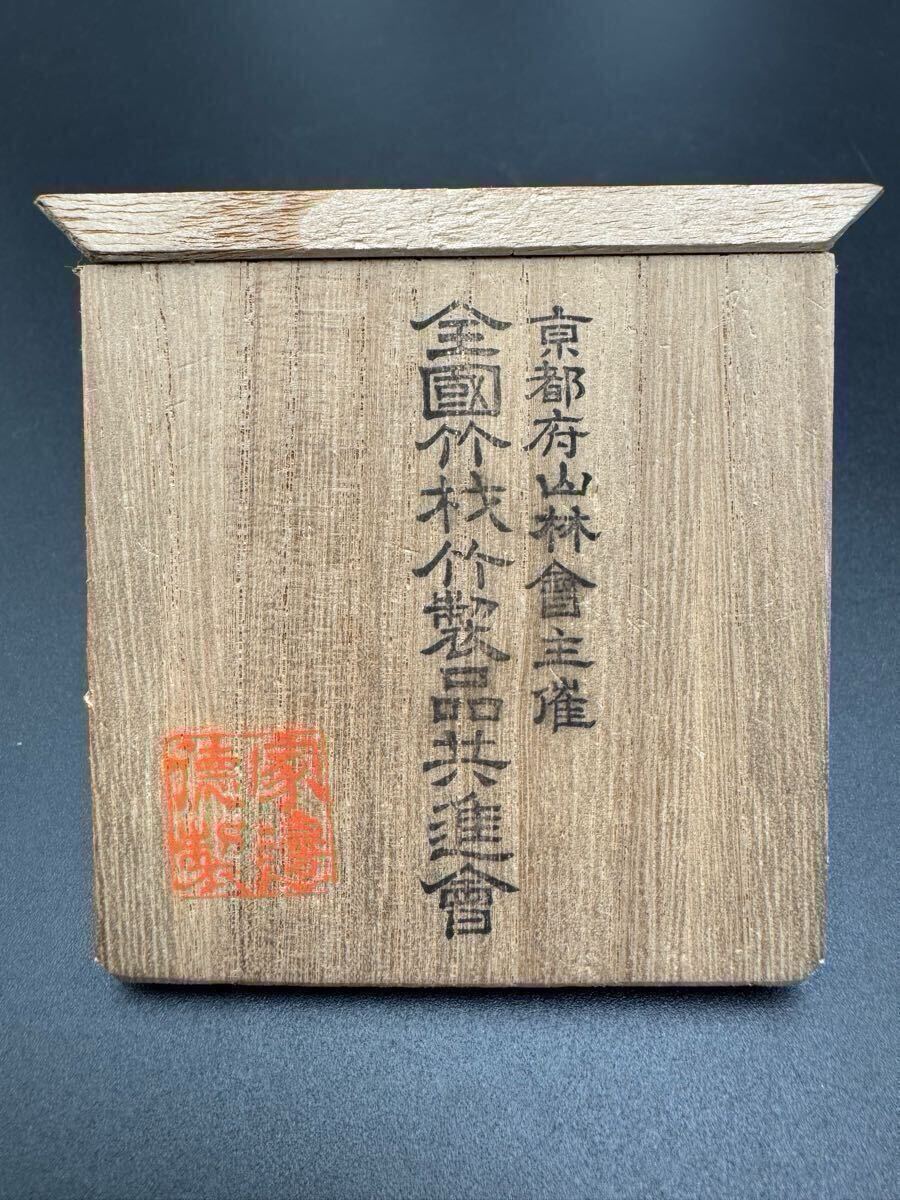 京都府山林會主催
全國竹材竹製品共進會